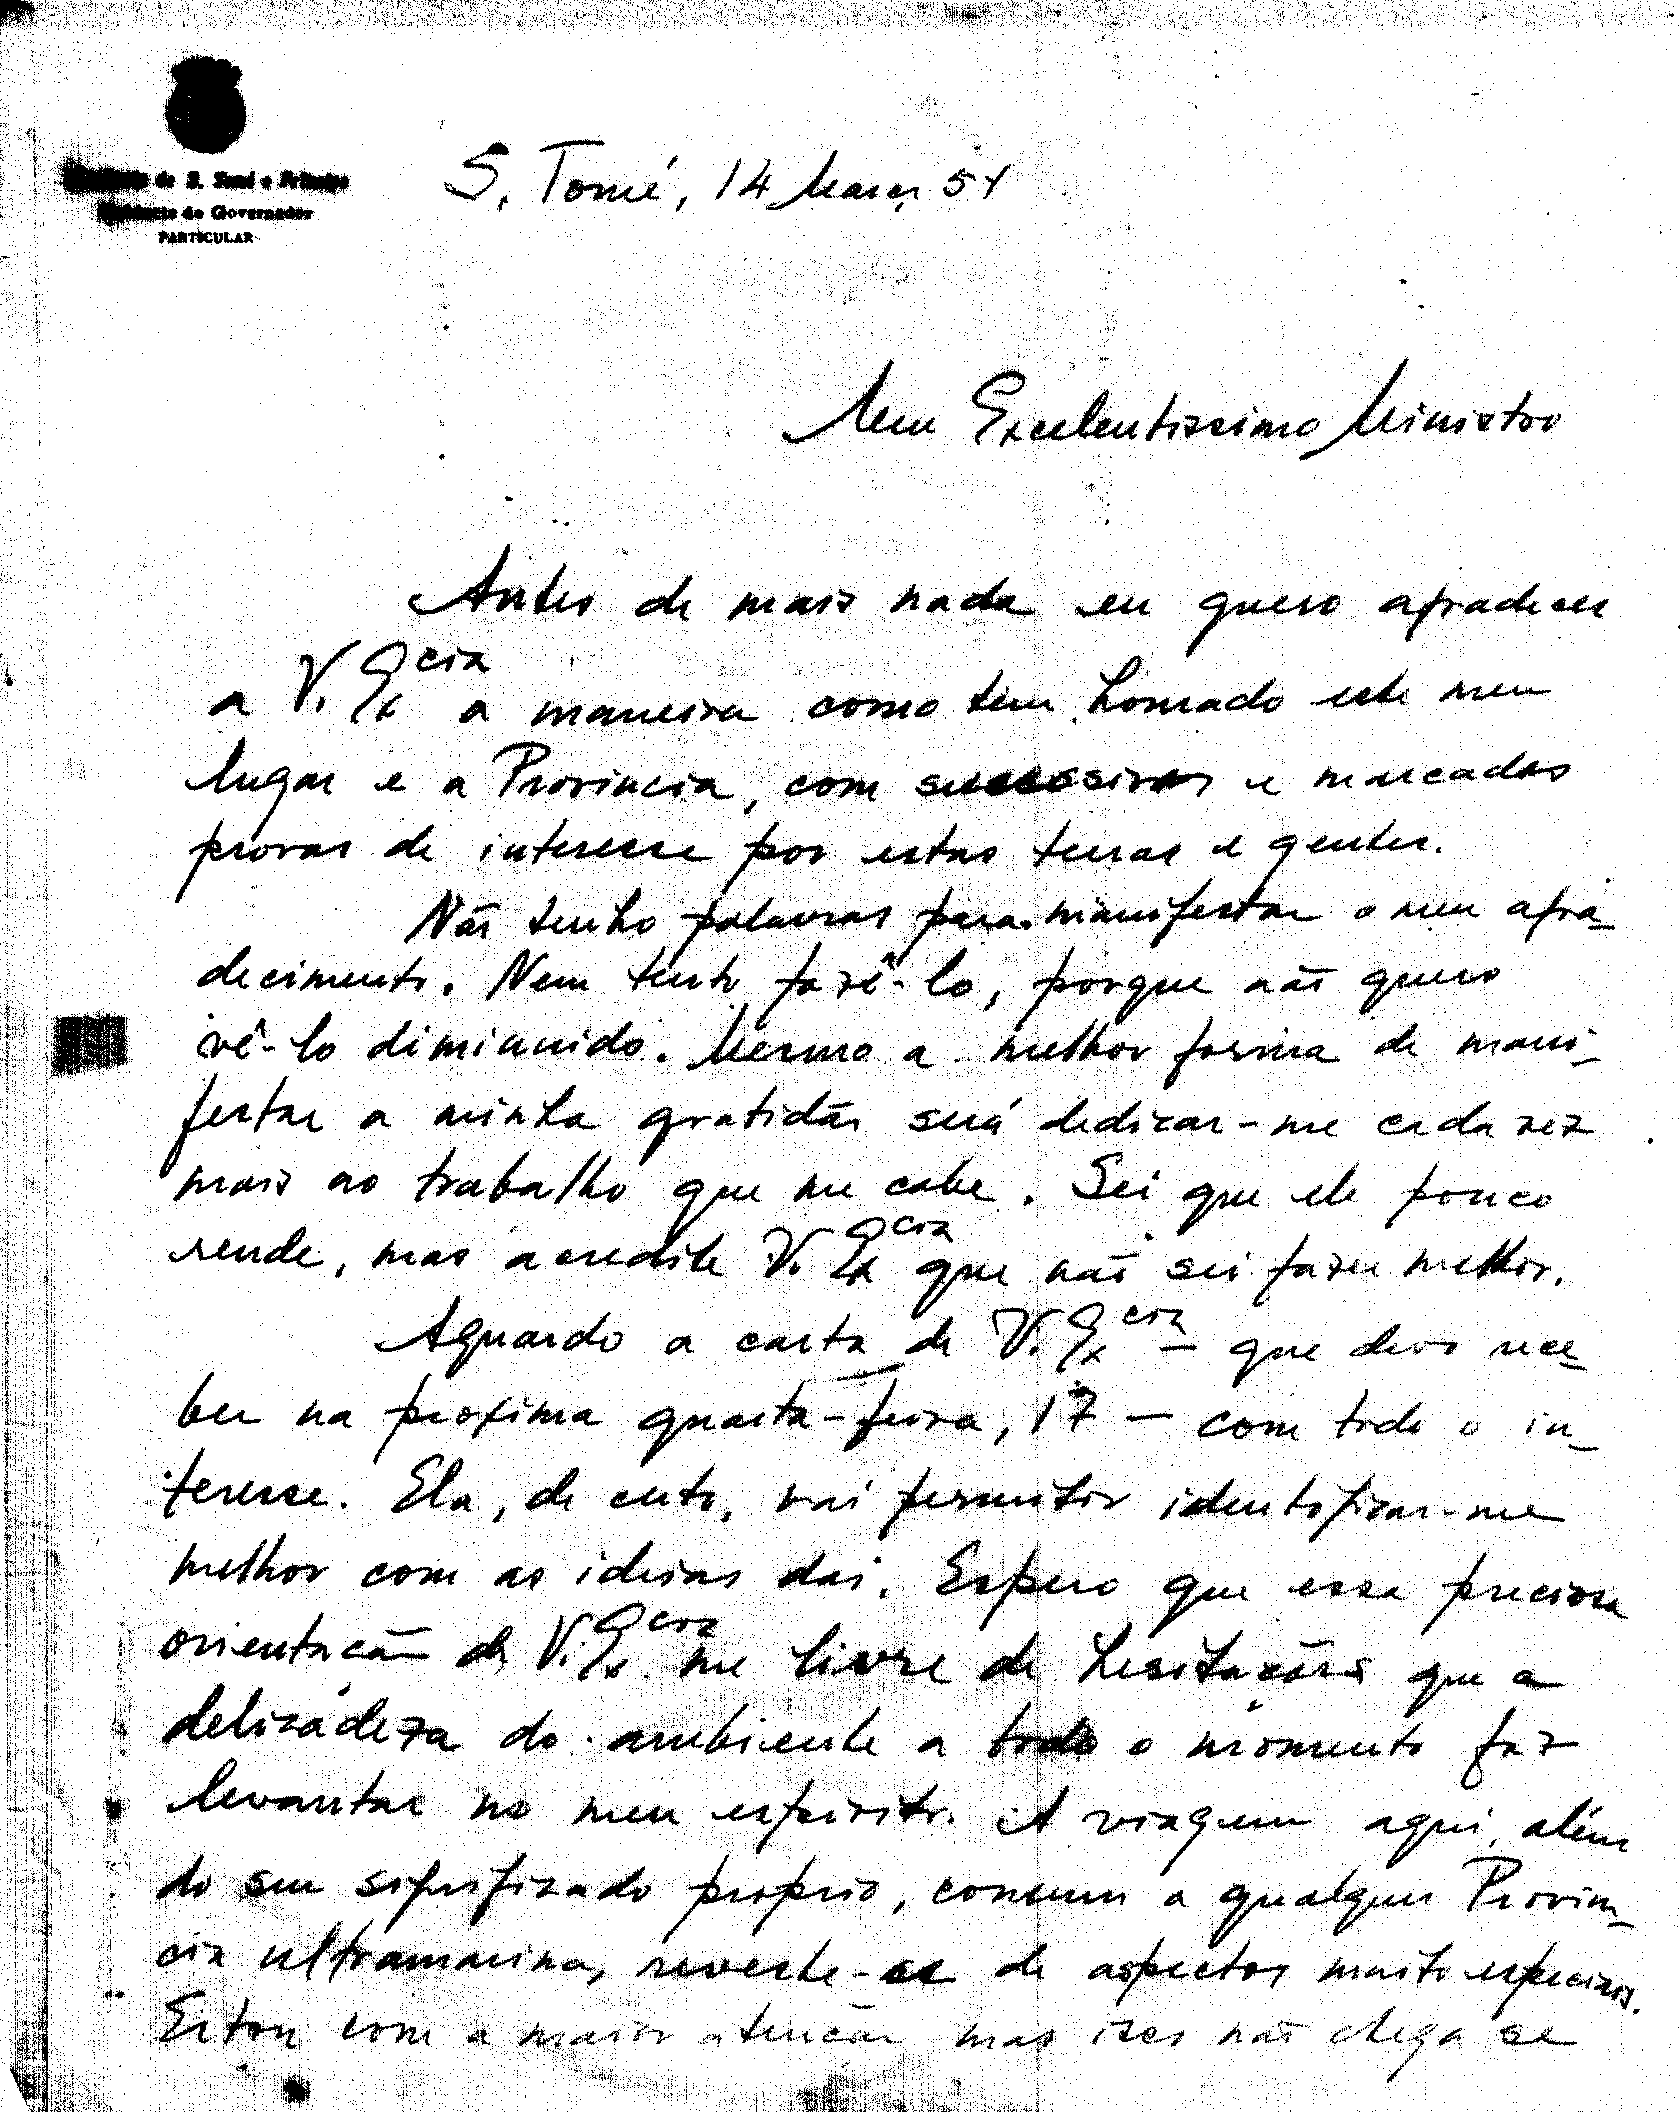 de S. Tomé e Príncipe
do Governador
PARTICULAR
S. Tomé, 14 Março 54
Meu Excelentissimo Ministro
Antes de mais nada eu quero agradecer
a V. Excia a maneira como tem honrado este meu
lugar e a Provincia, com sucessivas e marcadas
provas de interesse por estas terras e gentes.
Não tenho palavras para manifestar o meu agra-
decimento. Nem tento fazê-lo, porque não quero
vê-lo diminuido. Mesmo a melhor forma de mani-
festar a minha gratidão será dedicar-me cada vez
mais ao trabalho que me cabe. Sei que ele pouco
rende, mas acredite V. Excia que não sei fazer melhor.
Aguardo a carta de V. Excia - que devo rece-
ber na proxima quarta-feira, 17 - com todo o in-
teresse. Ela, de certo, vai permitir identificar-me
melhor com as ideias daí. Espero que essa preciosa
orientação de V. Excia me livre de hesitações que a
delicadeza do ambiente a todo o momento faz
levantar no meu espirito. A viagem aqui, além
do seu significado proprio, comum a qualquer Provin-
cia ultramarina, reveste-se de aspectos muito especiais.
Estou com a maior atenção mas isso não chega se